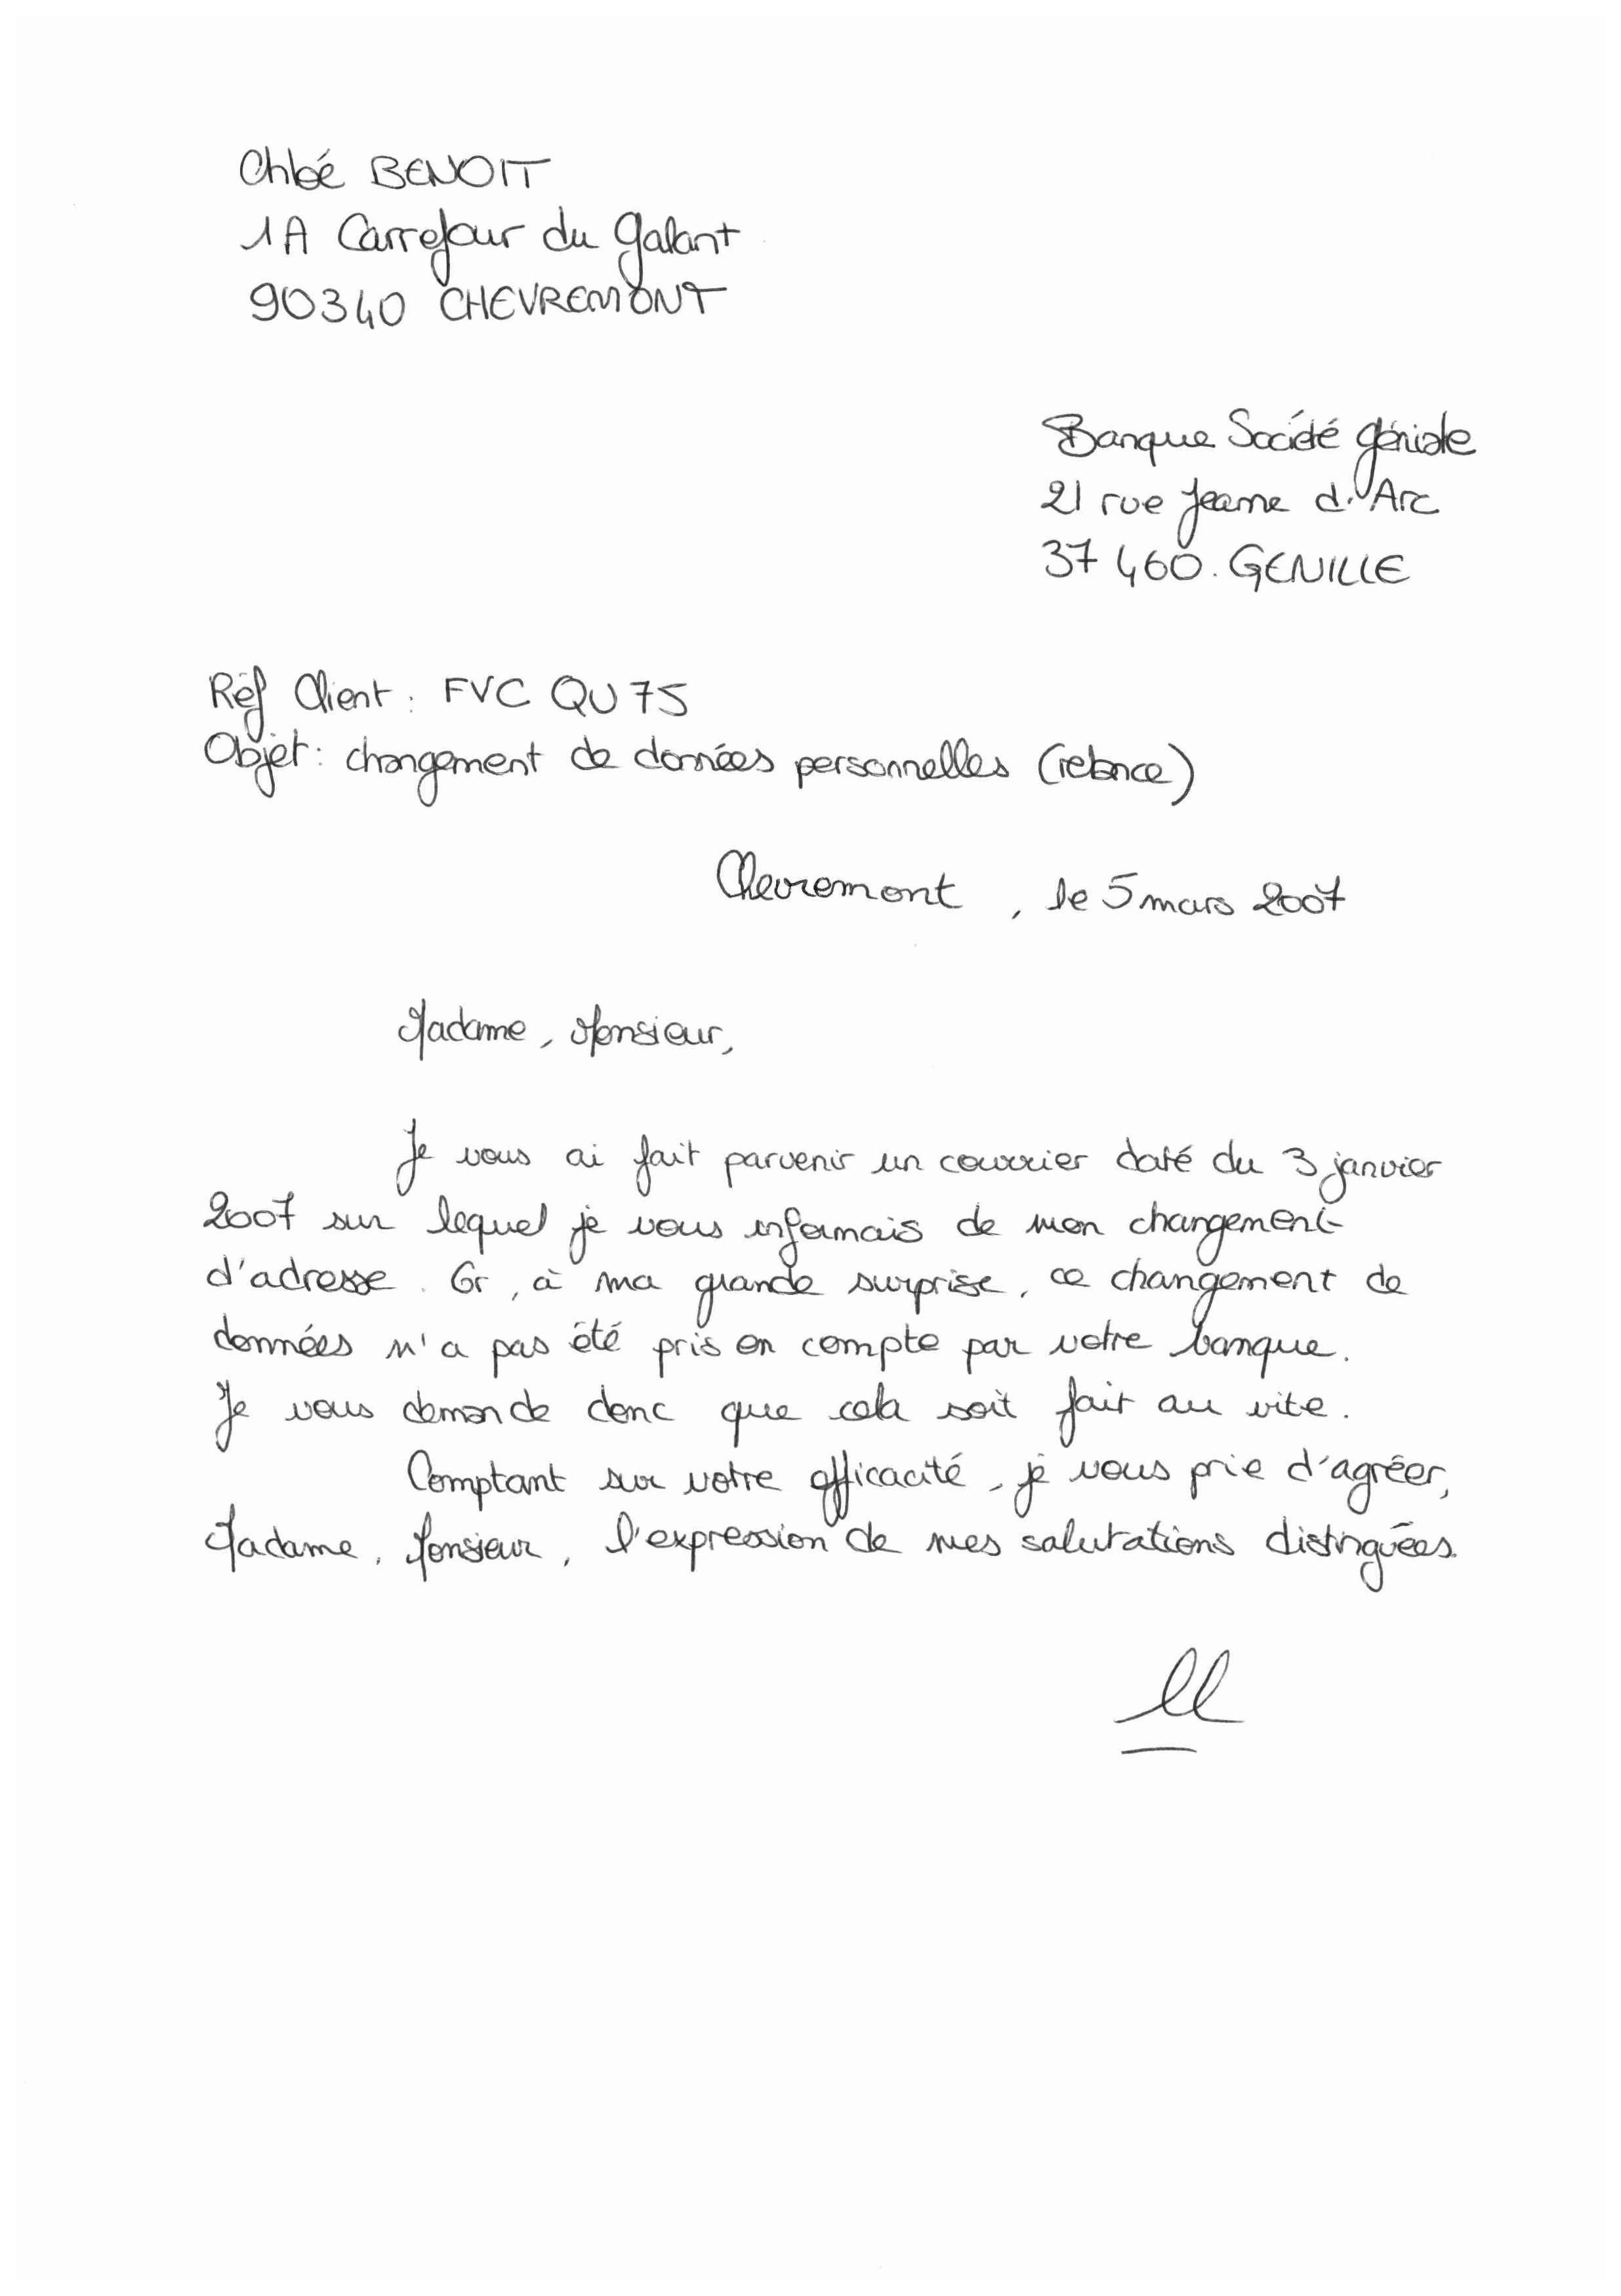 Chloé BENOIT
1A Carrefour du Galant
90340 CHEVREMONT
Banque Société Géniale
21 rue Jeanne d'Arc
37 460. GENILLE
Réf Client : FVC QU 75
Objet : changement de données personnelles (relance)
Chevremont , le 5 mars 2007
Madame, Monsieur,
Je vous ai fait parvenir un courrier daté du 3 janvier
2007 sur lequel je vous informais de mon changement
d'adresse. Or, à ma grande surprise, ce changement de
données n'a pas été pris en compte par votre banque.
Je vous demande donc que cela soit fait au vite.
Comptant sur votre efficacité, je vous prie d'agréer,
Madame, Monsieur, l'expression de mes salutations distinguées.